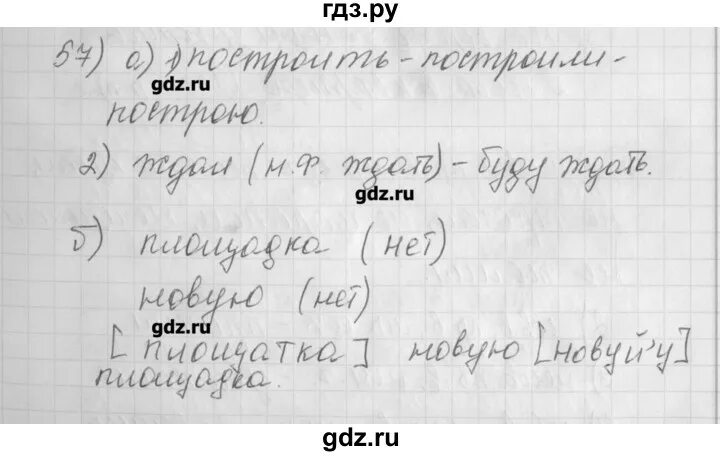 гдз.ру
57) а) 1) построить - построили -
gdz.ru
построю.
2) ждал (н.ф. ждать) - буду ждать.
gdz.ru
б) площадка (нет)
новую (нет)
gdz.ru
[площатка] новую [новуй'у]
площадка.
gdz.ru